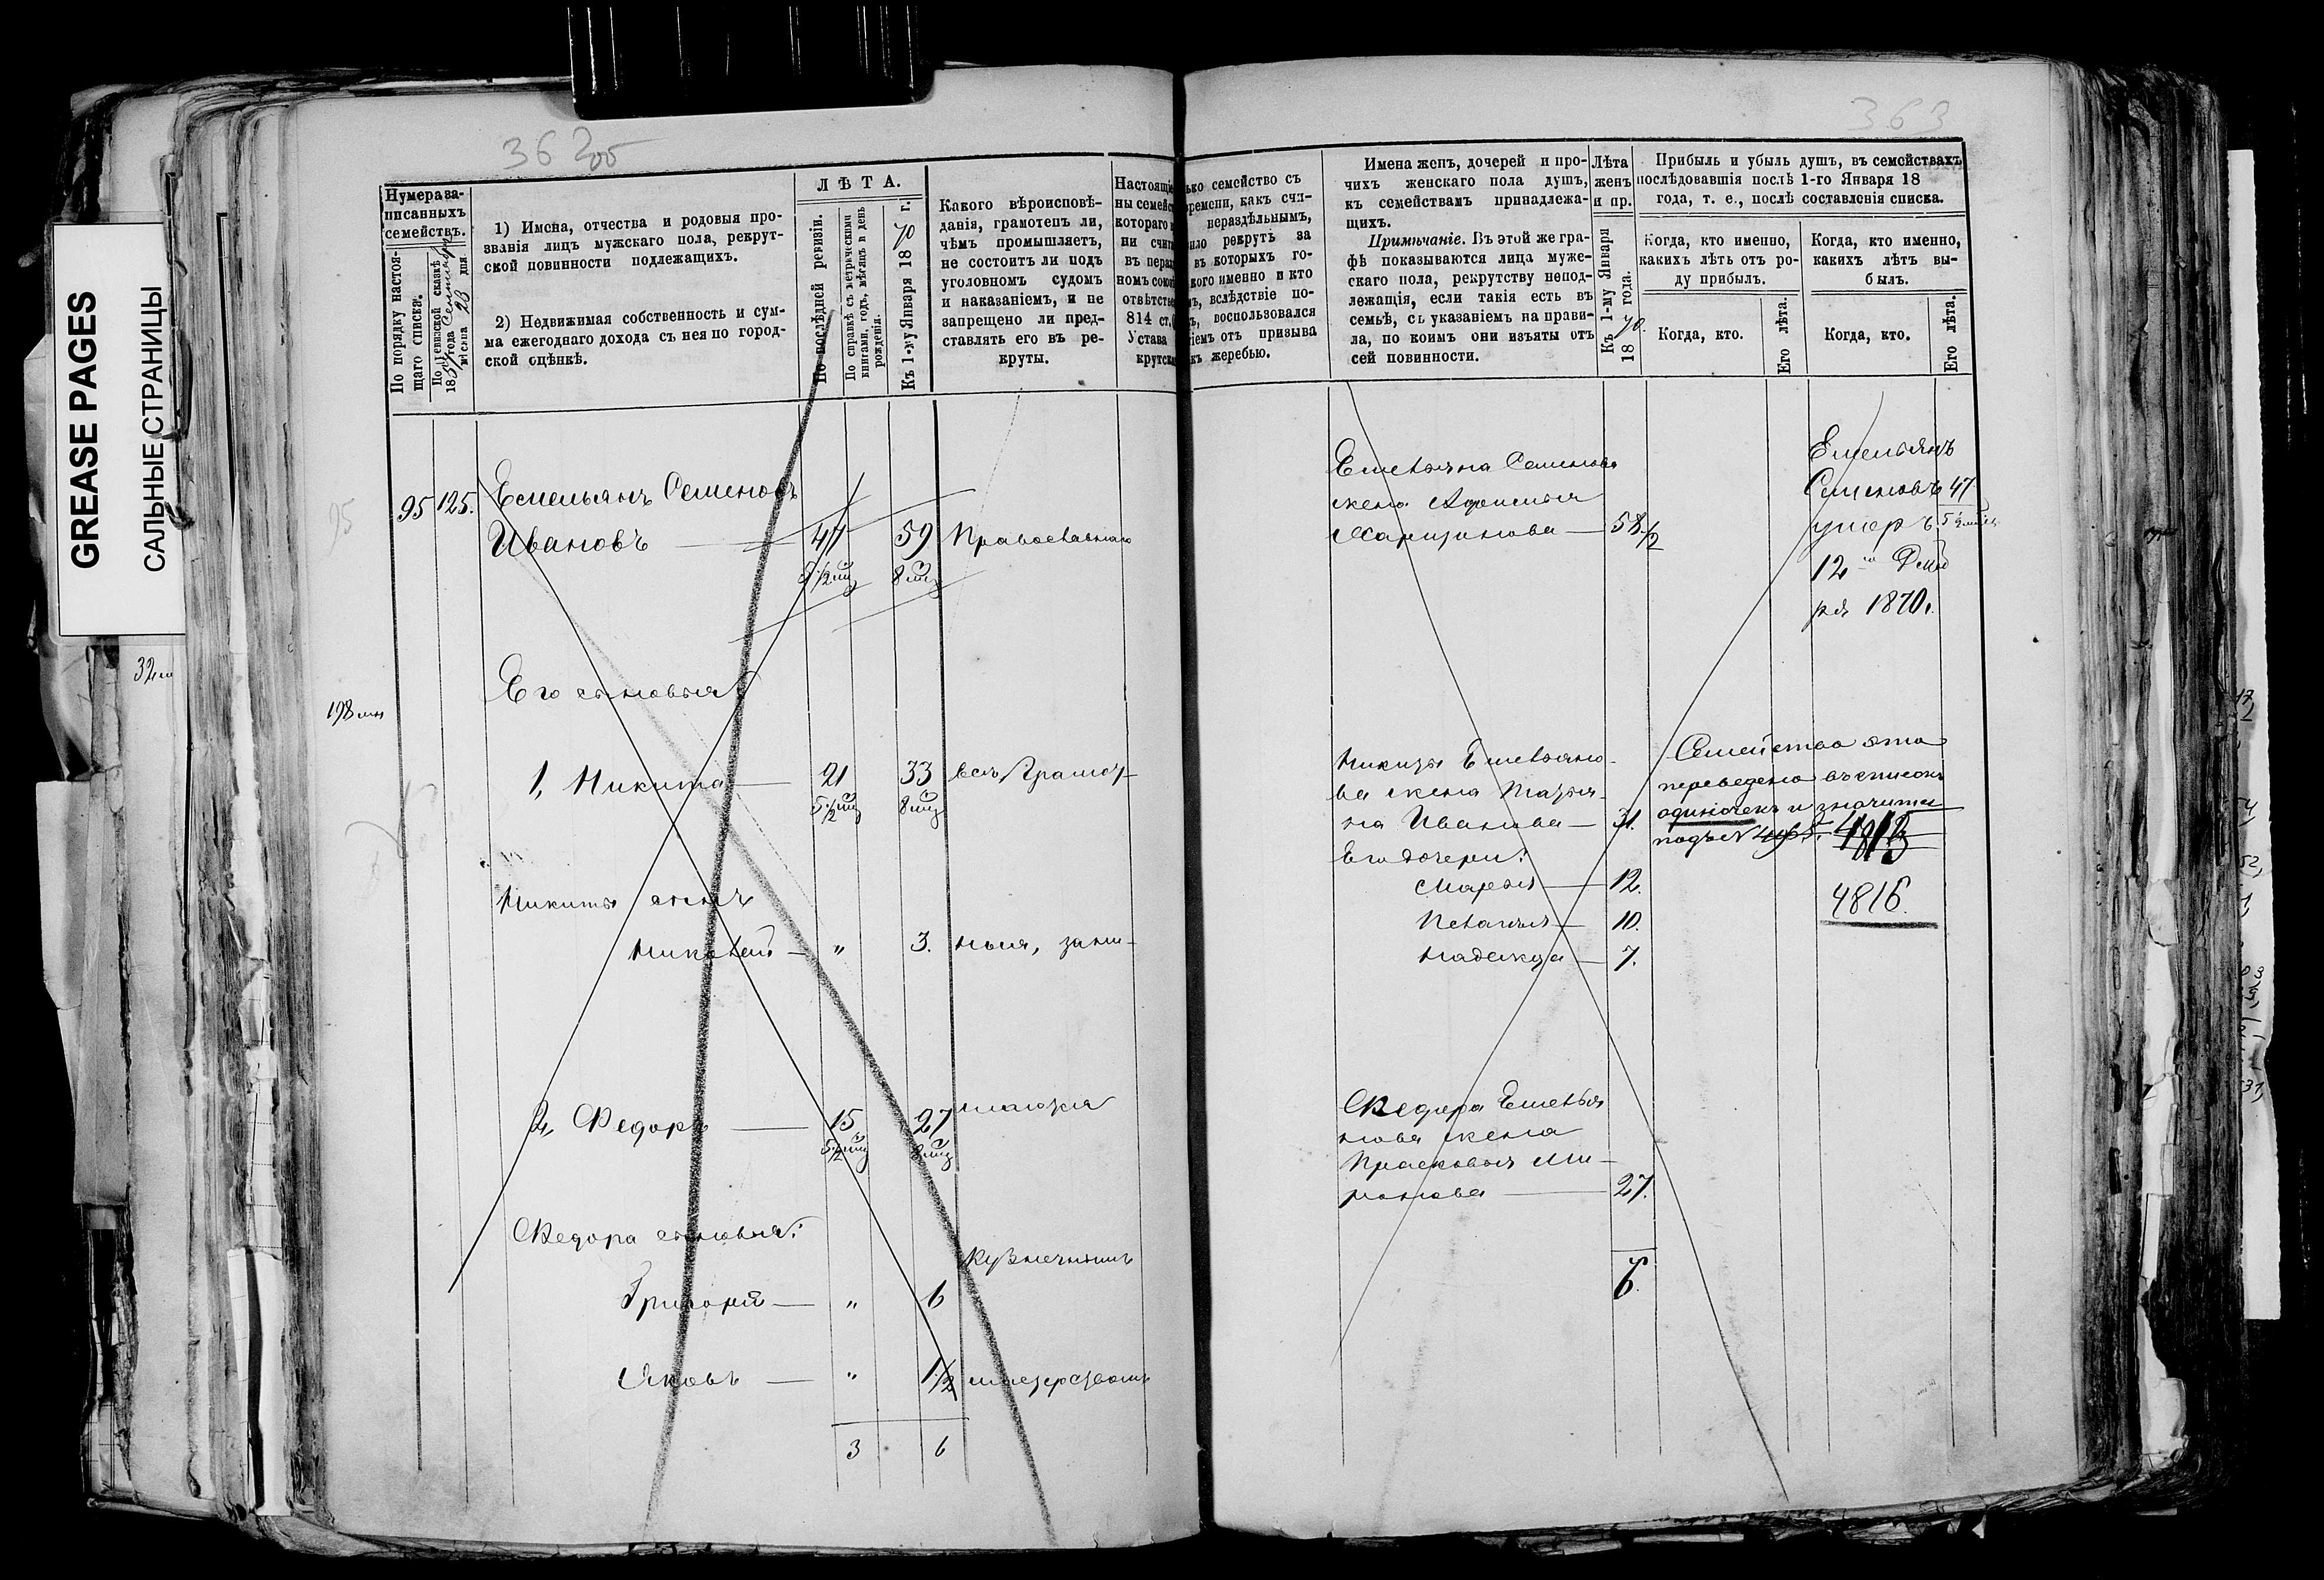 GREASE PAGES
САЛЬНЫЕ СТРАНИЦЫ
32
362об
Нумера за-
писанныхъ
семействъ.
По порядку настоя-
щаго списка.
По ревизской сказкѣ
185 года
мѣсяца 23 дня.
1) Имена, отчества и родовыя про-
званія лицъ мужскаго пола, рекрут-
ской повинности подлежащихъ.
2) Недвижимая собственность и сум-
ма ежегоднаго дохода съ нея по город-
ской оцѣнкѣ.
ЛѢТА.
По послѣдней ревизіи.
По справкѣ съ метрическими
книгами, годъ, мѣсяцъ и день
рожденія.
Къ 1-му Января 1870 г.
Какого вѣроисповѣ-
данія, грамотенъ ли,
чѣмъ промышляетъ,
не состоитъ ли подъ
уголовномъ судомъ
и наказаніемъ, и не
запрещено ли пред-
ставлять его въ ре-
круты.
Настоящіе
ны семейс
котораго
ни счит
въ нераз
номъ сою
отвѣтств
814 ст.
Устава
крутск
95 125. Емельянъ Семеновъ
Ивановъ — 47 59 Православнаго
5 1/2 мц 8 мц
Его сыновья
198
1, Никита — 21 33 всѣ Грамот-
5 1/2 мц 8 мц
Никиты сынъ
Николай — „ 3. ные, зани-
2, Федоръ — 15 27 маются
5 1/2 мц 8 мц
Федора сыновья:
Кузнечнымъ
Григорій — „ 6
Яковъ — „ 1 1/2 мастерствомъ
3 6
363
ько семейство съ
ремени, какъ счи-
нераздѣльнымъ,
ило рекрутъ за
въ которыхъ го-
кого именно и кто
ъ, вслѣдствіе по-
ъ, воспользовался
іемъ отъ призыва
къ жеребью.
Имена женъ, дочерей и про-
чихъ женскаго пола душъ,
къ семействамъ принадлежа-
щихъ.
Примѣчаніе. Въ этой же гра-
фѣ показываются лица муже-
скаго пола, рекрутству непод-
лежащія, если такія есть въ
семьѣ, съ указаніемъ на прави-
ла, по коимъ они изъяты отъ
сей повинности.
Лѣта
женъ
и пр.
Къ 1-му Января
1870. года.
Прибыль и убыль душъ, въ семействахъ
послѣдовавшія послѣ 1-го Января 18
года, т. е., послѣ составленія списка.
Когда, кто именно,
какихъ лѣтъ отъ ро-
ду прибылъ.
Когда, кто.
Его лѣта.
Когда, кто именно,
какихъ лѣтъ вы-
былъ.
Когда, кто.
Его лѣта.
Емельяна Семенова
жена
58 1/2
Емельянъ
Семеновъ 47
умеръ 5 1/2
12го Декаб
ря 1870г.
Никиты Емельяно-
ва жена Татья-
на Иванова — 31.
Его дочери:
Марья — 12.
Пелагия — 10.
Надежда — 7.
Семейство это
переведено въ списокъ
одиночекъ и значится
подъ №
4816.
Федора Емелья
нова жена
Прасковья Ми-
ронова — 27.
6.